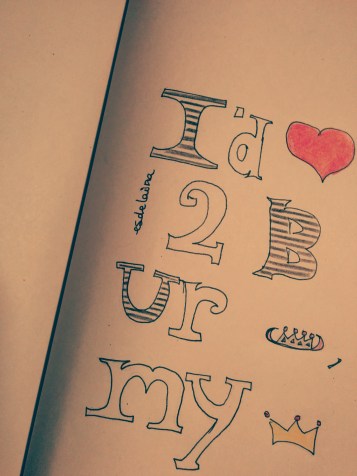 I'd
2 B
ur ,
my
esdelaina